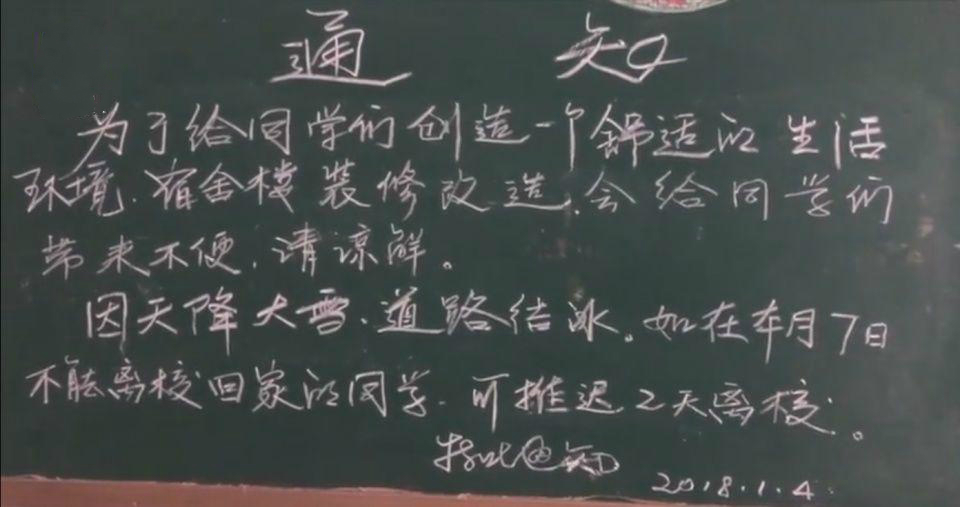 通知
为了给同学们创造一个舒适的生活
环境.宿舍楼装修改造.会给同学们
带来不便.请谅解。
因天降大雪.道路结冰。如在本月7日
不能离校回家的同学.可推迟2天离校。
特此通知
2018.1.4